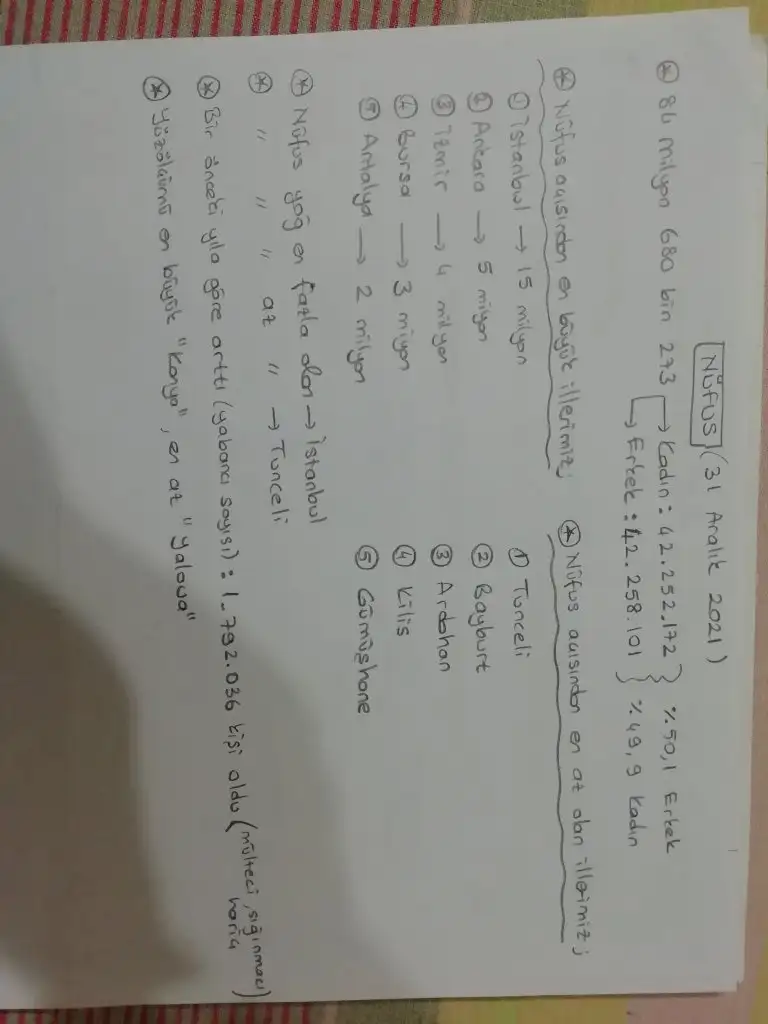 NÜFUS (31 Aralık 2021)
* 84 milyon 680 bin 273 → Kadın: 42.252.172 } %50,1 Erkek
→ Erkek: 42.258.101 } %49,9 Kadın
* Nüfus açısından en büyük illerimiz;
① İstanbul → 15 milyon
② Ankara → 5 milyon
③ İzmir → 4 milyon
④ Bursa → 3 milyon
⑤ Antalya → 2 milyon
* Nüfus açısından en az olan illerimiz;
① Tunceli
② Bayburt
③ Ardahan
④ Kilis
⑤ Gümüşhane
* Nüfus yoğ en fazla olan → İstanbul
* " " " az " → Tunceli
* Bir önceki yıla göre arttı (yabancı sayısı): 1.792.036 kişi oldu (mülteci, sığınmacı hariç)
* Yüzölçümü en büyük "Konya", en az "Yalova"